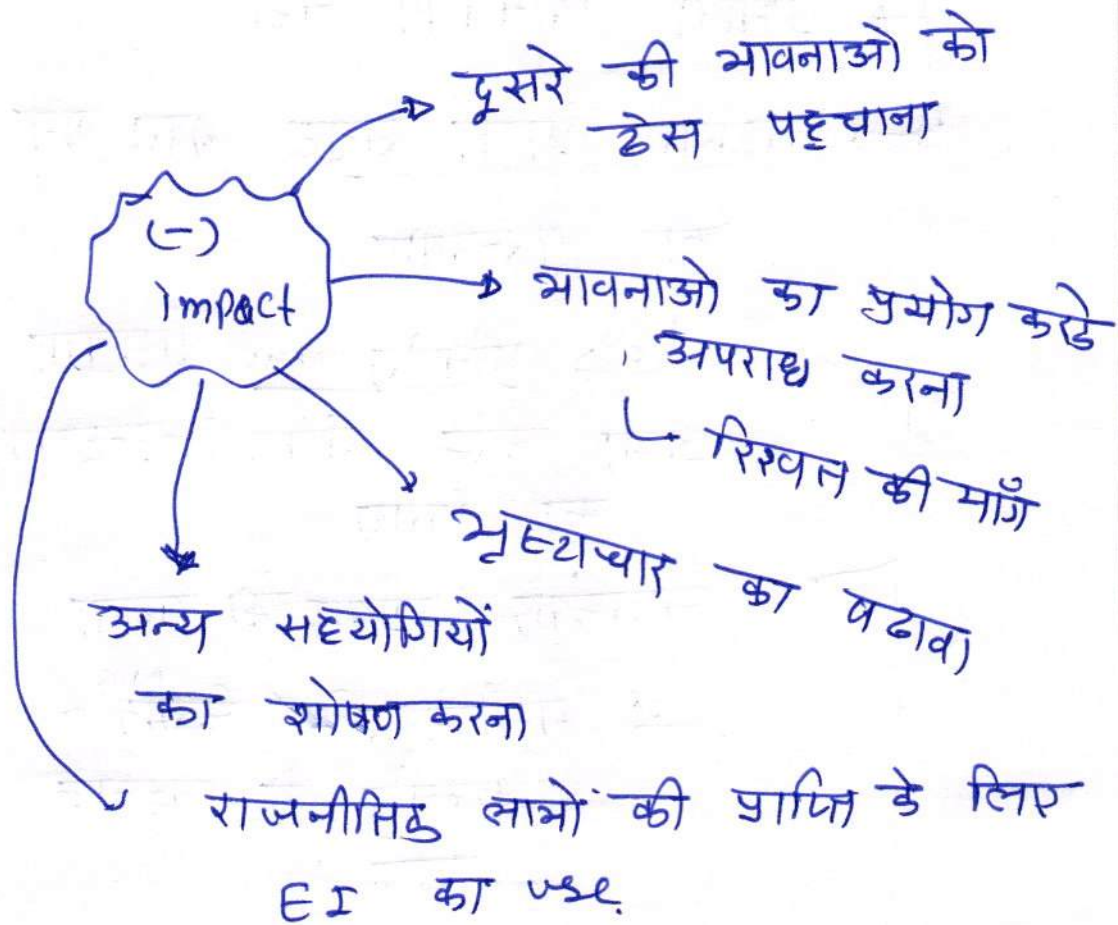 दूसरे की भावनाओ को
ठेस पहचाना
(-)
Impact
भावनाओ का प्रयोग करके
अपराध करना
रिश्वत की माँग
भ्रष्टाचार का बढावा
अन्य सहयोगियों
का शोषण करना
राजनीतिक लाभों की प्राप्ति के लिए
EI का use.